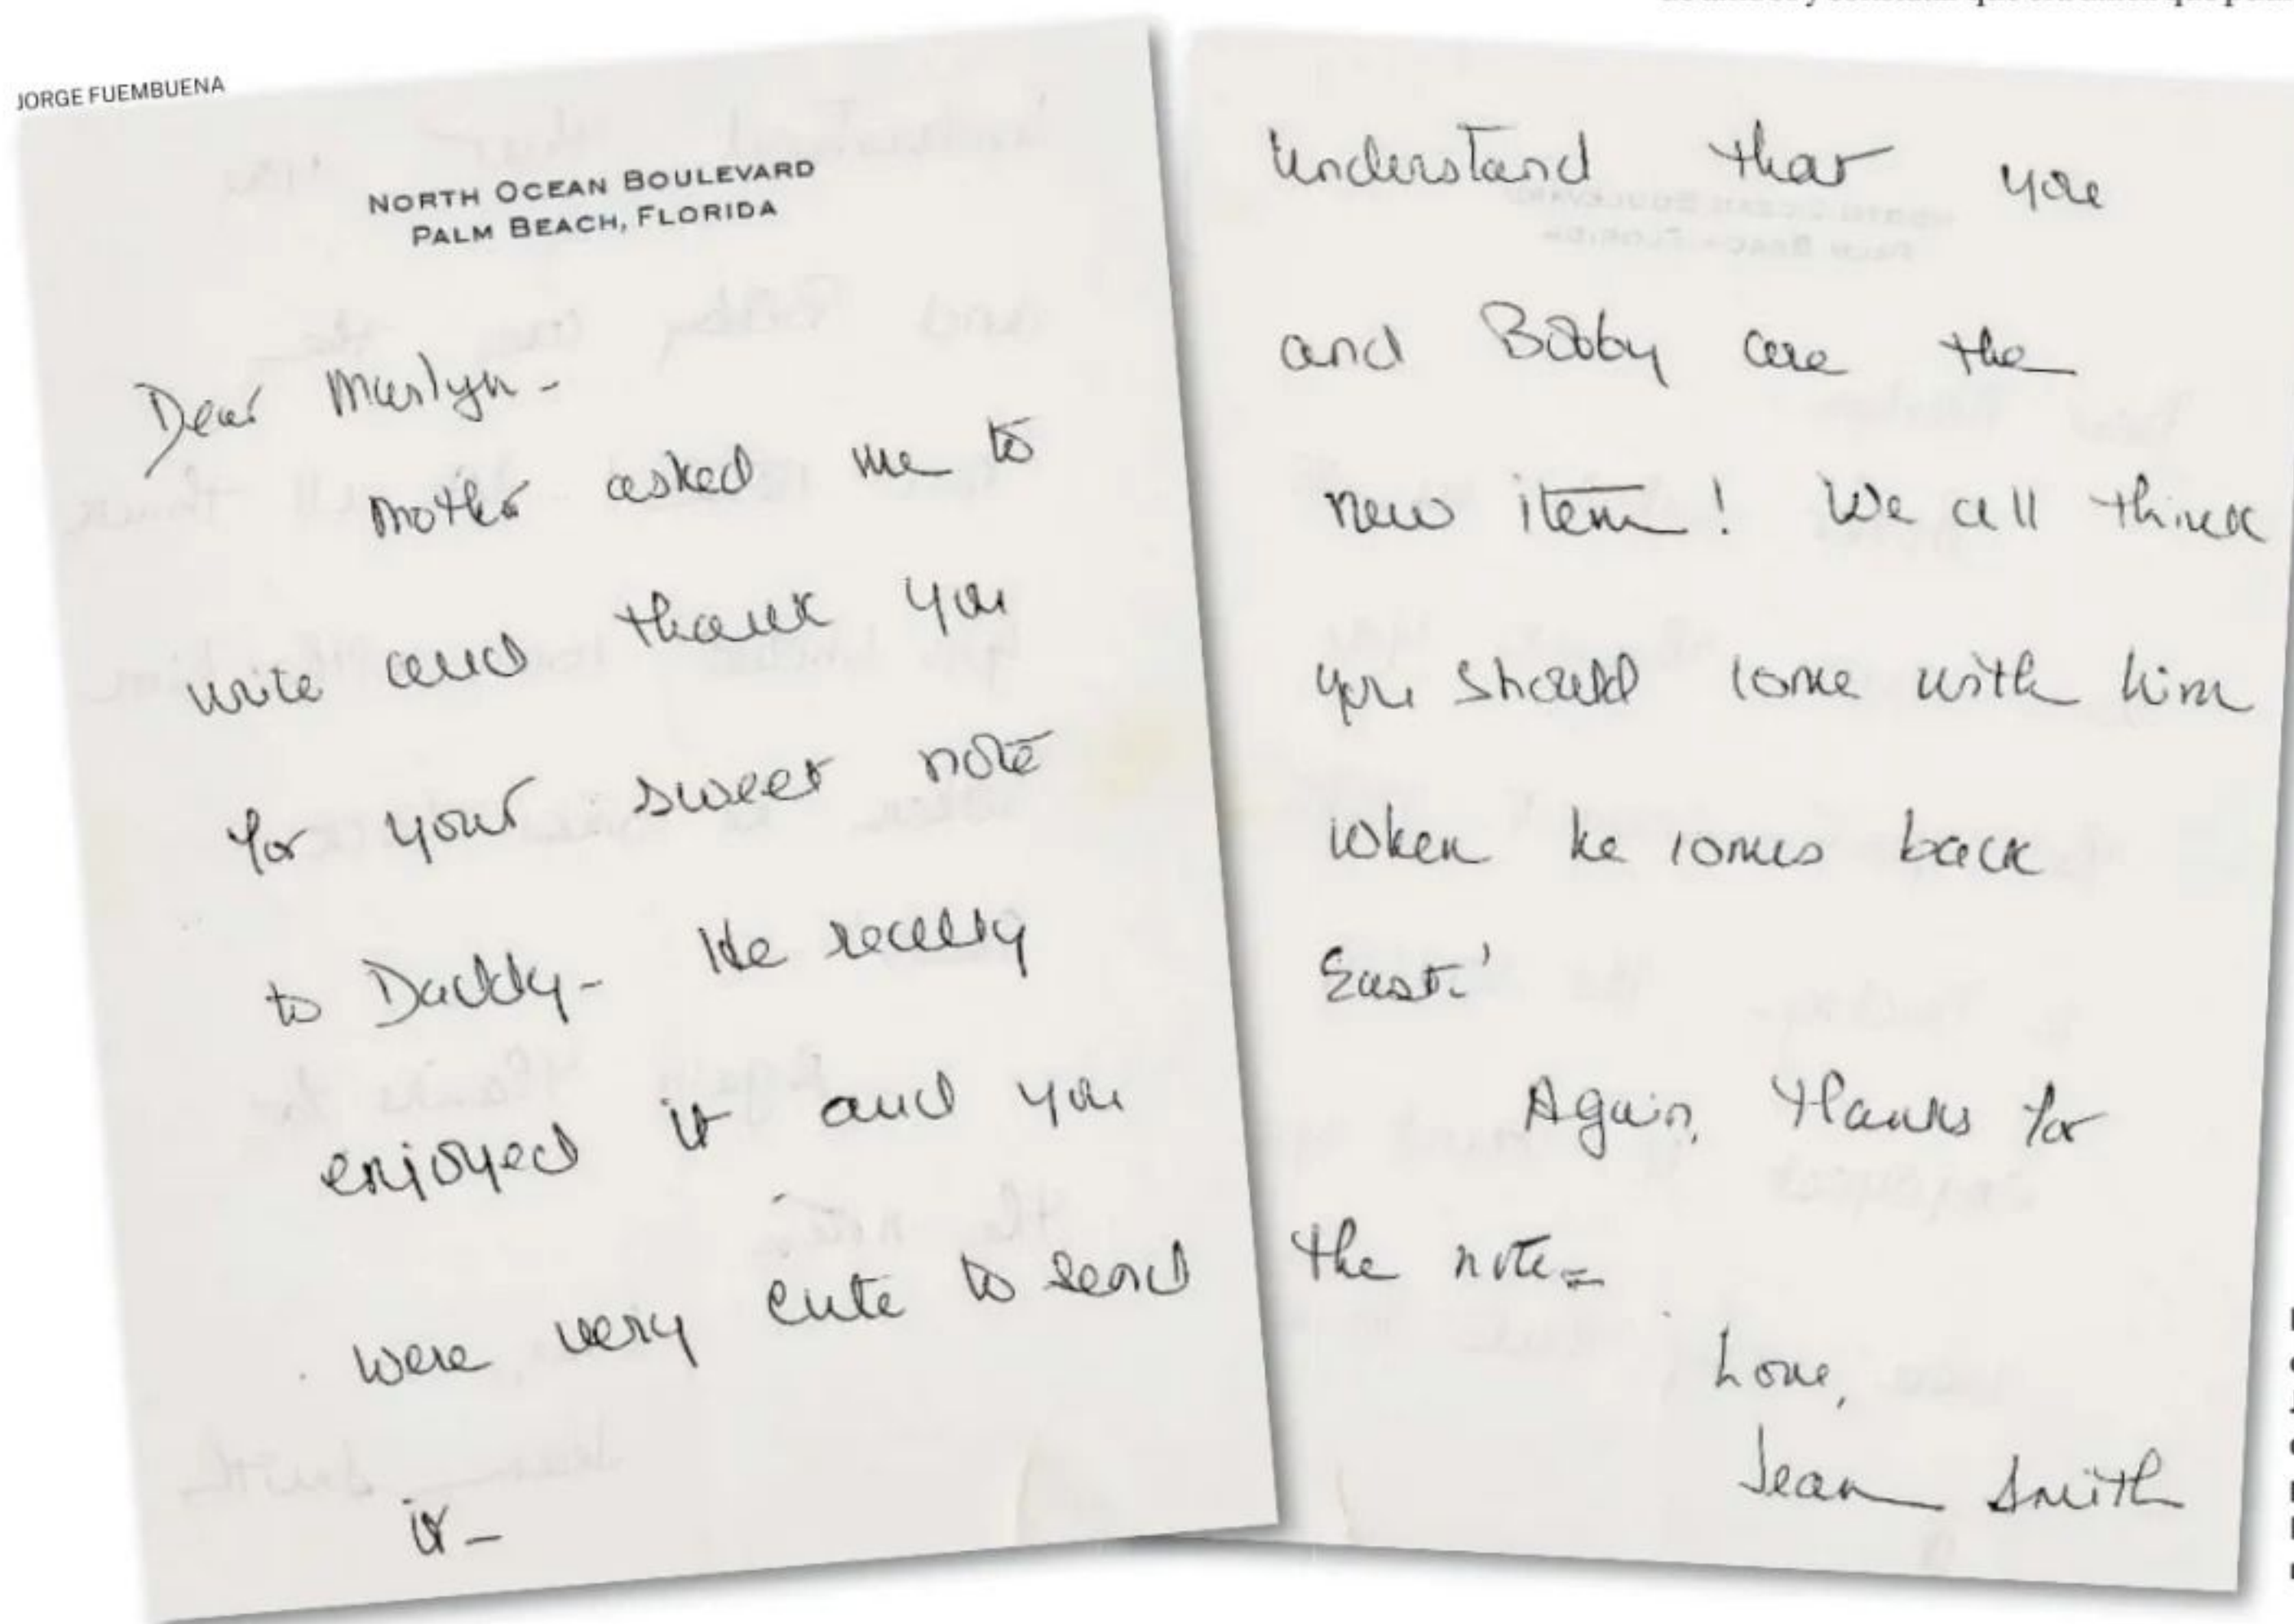 JORGE FUEMBUENA
NORTH OCEAN BOULEVARD
PALM BEACH, FLORIDA
Dear Marlyn -
Mother asked me to
write and thank you
for your sweet note
to Daddy - He really
enjoyed it and you
were very cute to send
it -
Understand that you
and Bobby are the
new item! We all think
you should come with him
when he comes back
East!
Again, thanks for
the note -
Love,
Jean Smith